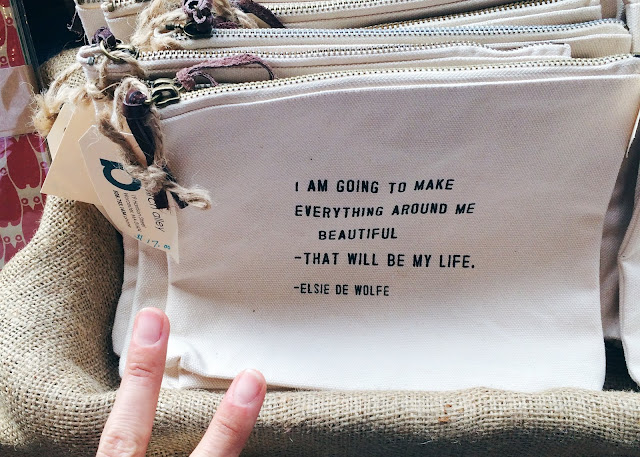 I AM GOING TO MAKE
EVERYTHING AROUND ME
BEAUTIFUL
-THAT WILL BE MY LIFE.
-ELSIE DE WOLFE
$ 17.00